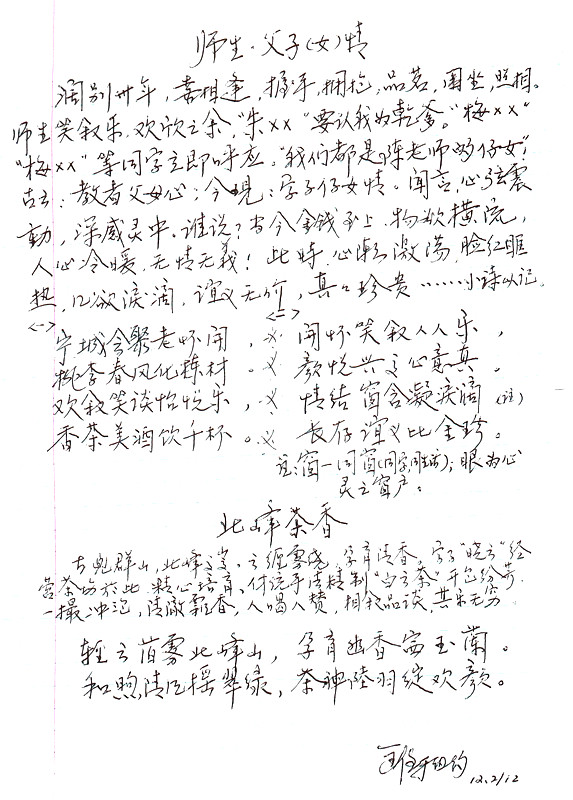 师生·父子(女)情
阔别卅年，喜相逢，握手，拥抱，品茗，围坐，照相。
师生笑叙乐，欢欣之余，"朱××"要认我为乾爹。"梅××"
"梅××"等同学立即呼应，"我们都是陈老师的仔女"！
古云：教者父母心；今现：学子仔女情。闻言，心弦震
動，深感灵中。谁说？当今金钱至上，物欲横流，
人心冷暖，无情无義！此時，心潮激荡，脸红眶
热，几欲淚滴，谊义无价，真真珍贵……小诗以记。
<一> <二>
宁城会聚老怀開， 開怀笑叙人人乐，
桃李春风化栋材。 颜悦兴言心意真。
欢叙笑谈怡悦乐， 情结窗含凝淚滴(注)
香茶美酒饮千杯。 长存谊义比金珍。
注:窗—同窗(同学,师生);眼为心
灵之窗户。
北峰茶香
古兜群山，北峰，云缠雾绕，孕育清香。学子"晓云"经
营茶场於此，精心培育，传统手法精制"白云茶"，千包纷芳，
一撮，冲泡，清澈飘香，人喝人赞，相叙品谈，其乐无穷
轻云茵雾北峰山， 孕育幽香蜜玉蘭。
和煦清风摇翠绿， 茶神陸羽绽欢颜。
12.2/12